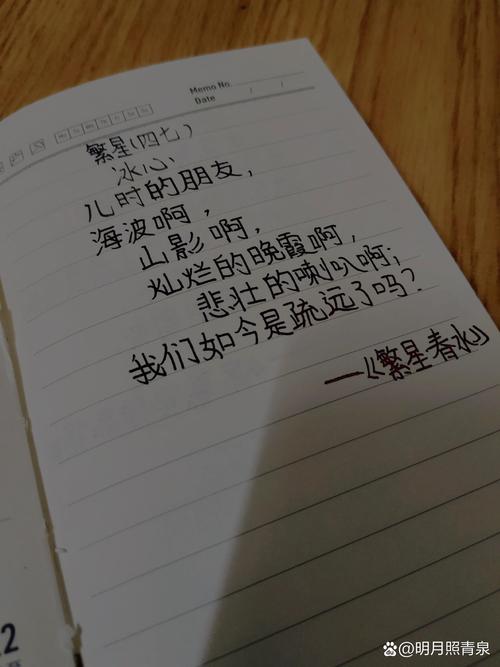 Memo No.
Date / /
繁星(四七)
冰心、
儿时的朋友,
海波啊,
山影啊,
灿烂的晚霞啊,
悲壮的喇叭啊;
我们如今是疏远了吗?
—《繁星春水》
2
@明月照青泉